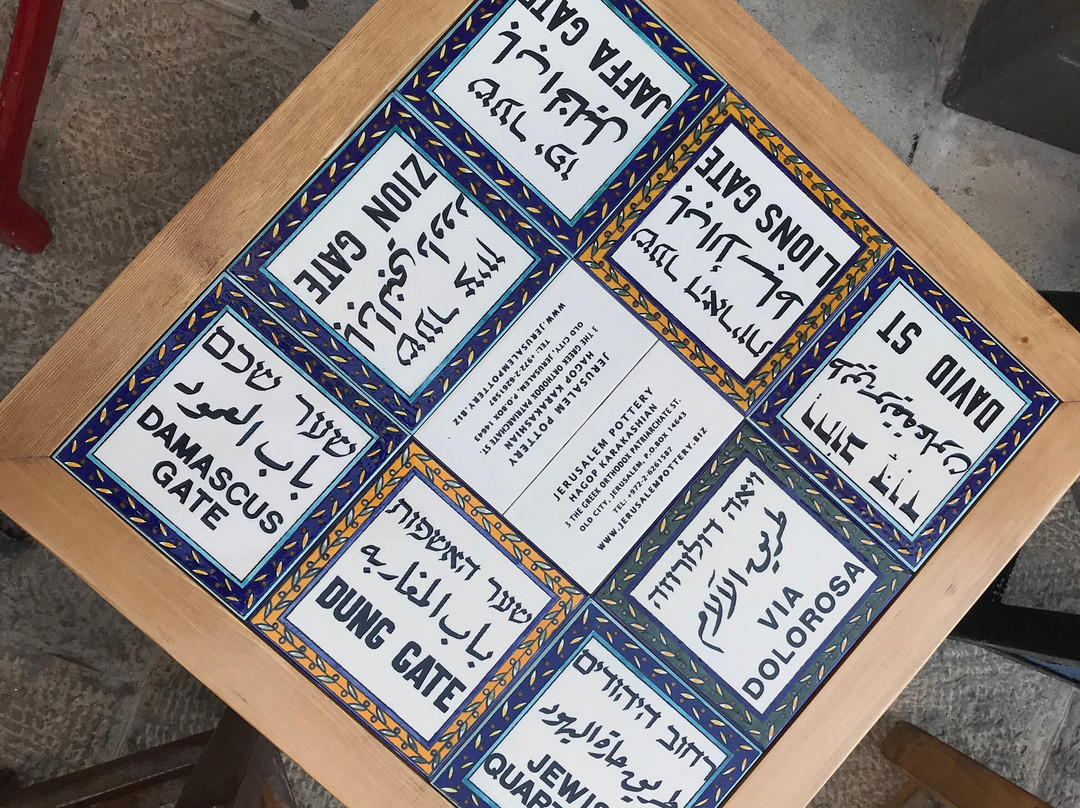 שער יפו
باب الخليل
JAFFA GATE
שער האריות
باب الأسباط
LIONS GATE
רחוב דוד
DAVID ST
שער ציון
باب النبي داوود
ZION GATE
JERUSALEM POTTERY
HAGOP KARAKASHIAN
3 THE GREEK ORTHODOX PATRIARCHATE ST.
OLD CITY, JERUSALEM, P.O.BOX 14643
TEL: +972-2-6261587
WWW.JERUSALEMPOTTERY.BIZ
JERUSALEM POTTERY
HAGOP KARAKASHIAN
3 THE GREEK ORTHODOX PATRIARCHATE ST.
OLD CITY, JERUSALEM, P.O.BOX 14643
TEL: +972-2-6261587
WWW.JERUSALEMPOTTERY.BIZ
ויאה דולורוזה
طريق الآلام
VIA
DOLOROSA
שער שכם
باب العمود
DAMASCUS
GATE
שער האשפות
باب المغاربه
DUNG GATE
רחוב היהודים
طريق حارة اليهود